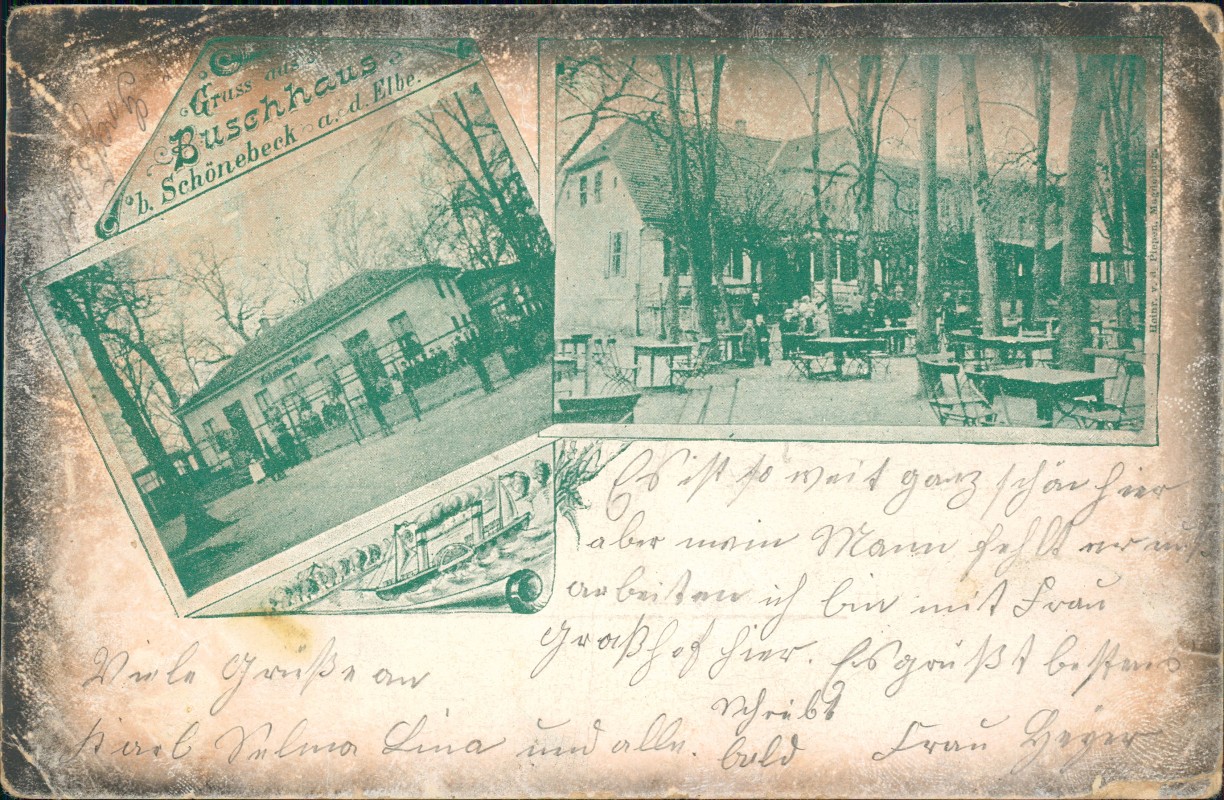 Gruss aus
Buschhaus
b. Schönebeck a. d. Elbe.
Heinr. v. d. Piepen, Magdeburg.
Es ist so weit ganz schön hier
aber mein Mann fehlt er muß
arbeiten ich bin mit Frau
Graßhof hier. Es grüßt bestens
Viele Grüße an
Karl Selma Lina und alle.
Schreibt
bald
Frau Heyer